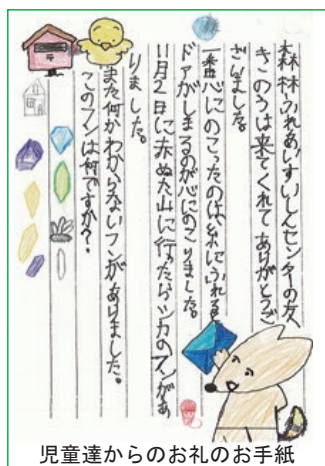 森林ふれあいすいしんセンターの友
きのうは来てくれてありがとうご
ざいました。
一番心にのこったのは、糸にふれると
ドアがしまるのが心にのこりました。
11月2日に赤ぬた山に行ったらシカのフンがあ
りました。
また何かわからないフンがありました。
このフンは何ですか?
児童達からのお礼のお手紙